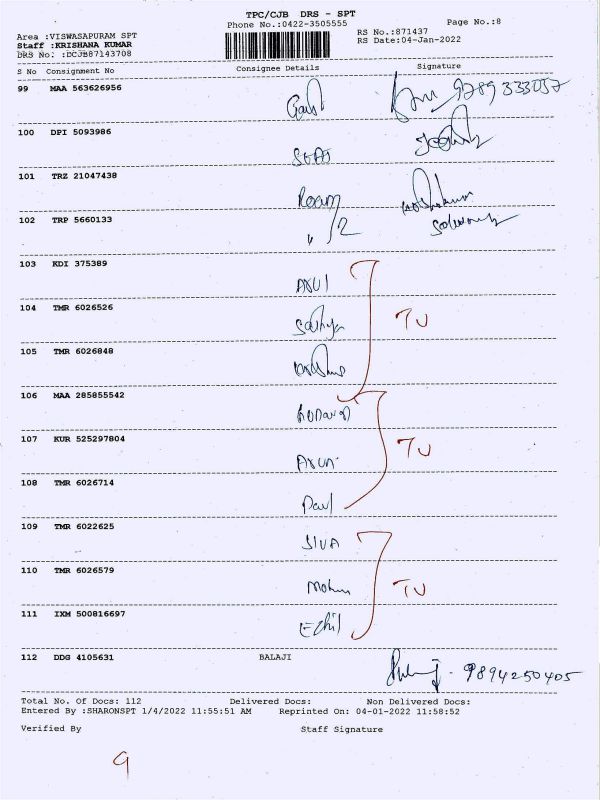 TPC/CJB DRS - SPT
Phone No.:0422-3505555 Page No.:8
Area :VISWASAPURAM SPT RS No.:871437
Staff :KRISHANA KUMAR RS Date:04-Jan-2022
DRS No. :DCJB87143708
S No Consignment No Consignee Details Signature
99 MAA 563626956
9789333057
100 DPI 5093986
101 TRZ 21047438
102 TRP 5660133
103 KDI 375389
ARUl
104 TMR 6026526 TU
Sathya
105 TMR 6026848
106 MAA 285855542
107 KUR 525297804 TU
ARUN
108 TMR 6026714
Paul
109 TMR 6022625
SIVA
110 TMR 6026579 TU
Mohan
111 IXM 500816697
Ezhil
112 DDG 4105631 BALAJI
9894250405
Total No. Of Docs: 112 Delivered Docs: Non Delivered Docs:
Entered By :SHARONSPT 1/4/2022 11:55:51 AM Reprinted On: 04-01-2022 11:58:52
Verified By Staff Signature
9